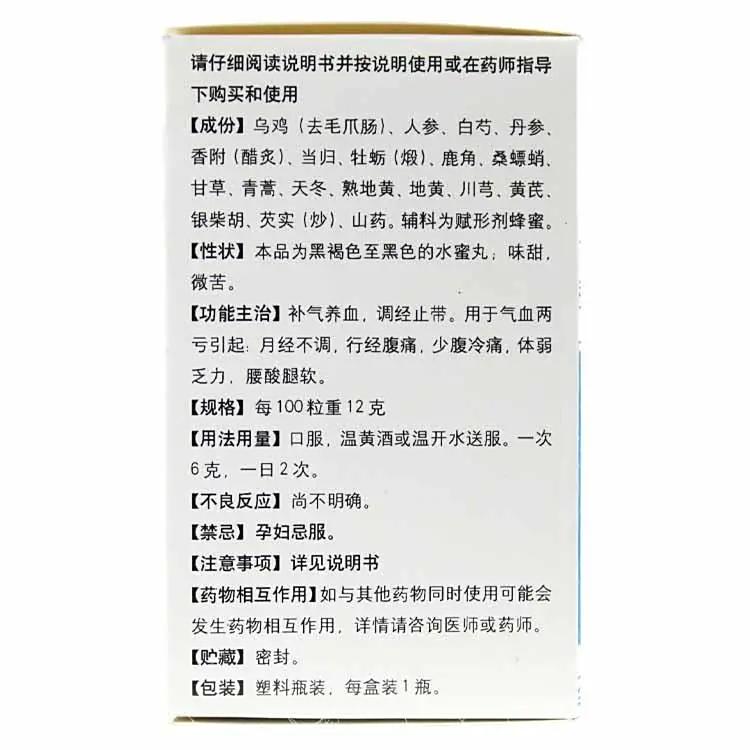 请仔细阅读说明书并按说明使用或在药师指导
下购买和使用
【成份】乌鸡（去毛爪肠）、人参、白芍、丹参、
香附（醋炙）、当归、牡蛎（煅）、鹿角、桑螵蛸、
甘草、青蒿、天冬、熟地黄、地黄、川芎、黄芪、
银柴胡、芡实（炒）、山药。辅料为赋形剂蜂蜜。
【性状】本品为黑褐色至黑色的水蜜丸；味甜，
微苦。
【功能主治】补气养血，调经止带。用于气血两
亏引起：月经不调，行经腹痛，少腹冷痛，体弱
乏力，腰酸腿软。
【规格】每100粒重12克
【用法用量】口服，温黄酒或温开水送服。一次
6克，一日2次。
【不良反应】尚不明确。
【禁忌】孕妇忌服。
【注意事项】详见说明书
【药物相互作用】如与其他药物同时使用可能会
发生药物相互作用，详情请咨询医师或药师。
【贮藏】密封。
【包装】塑料瓶装，每盒装1瓶。